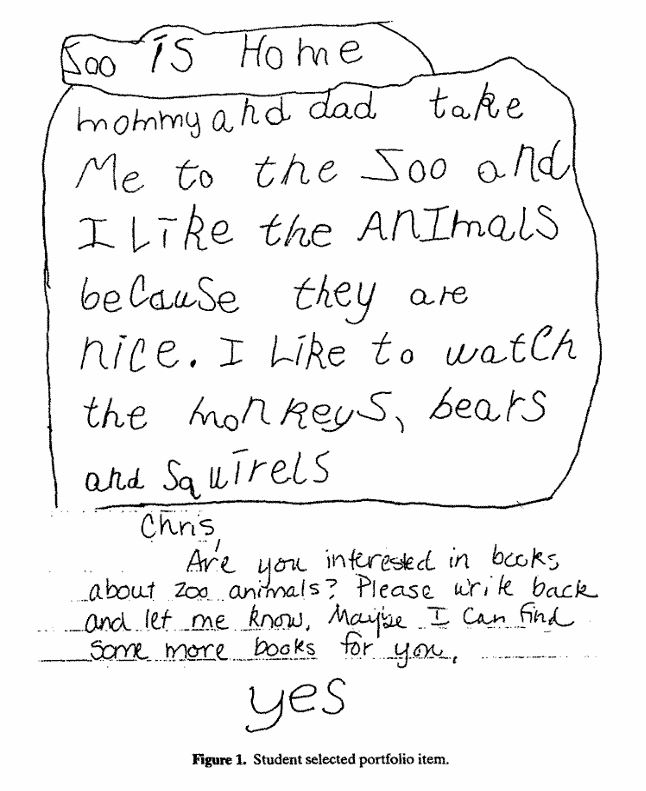 Soo is Home
mommy and dad take
Me to the Soo and
I Like the ANImals
because they are
nice. I Like to watch
the monkeys, bears
and Squirrels
Chris,
Are you interested in books
about zoo animals? Please write back
and let me know. Maybe I can find
some more books for you.
yes
Figure 1. Student selected portfolio item.